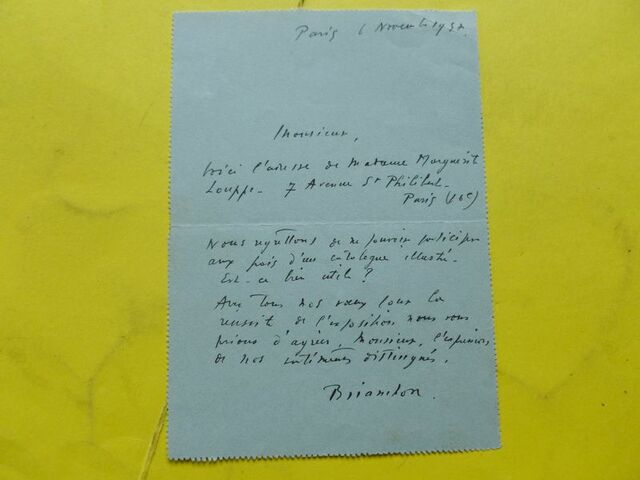 Paris 6 Novembre 193
Monsieur,
Voici l'adresse de Madame Marguerite
Louppe - 7 Avenue St Philibert -
Paris (16e)
Nous regrettons de ne pouvoir participer
aux frais d'un catalogue illustré -
Est-ce bien utile ?
Avec tous nos vœux pour la
réussite de l'exposition nous vous
prions d'agréer, Monsieur, l'expression
de nos sentiments distingués.
Brianchon